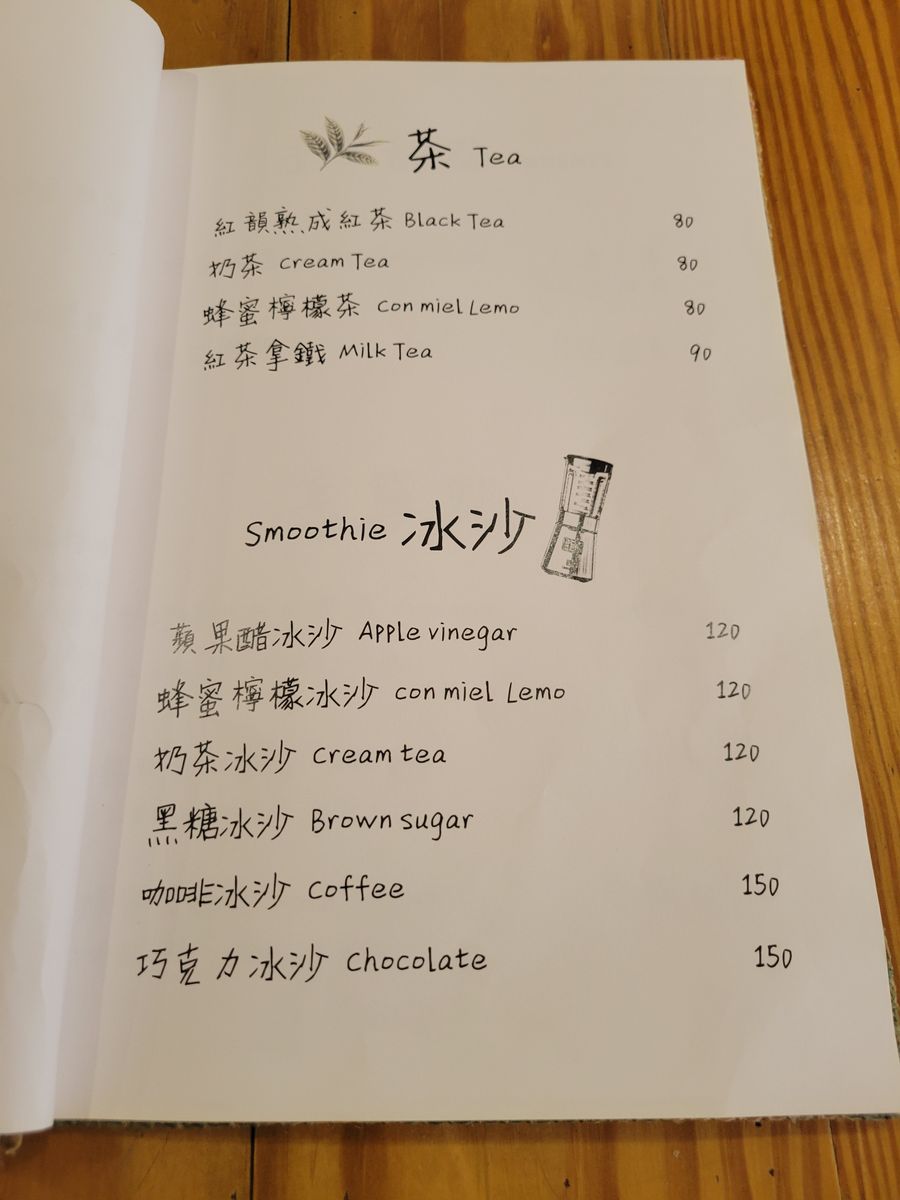 茶 Tea
紅韻熟成紅茶 Black Tea 80
奶茶 cream Tea 80
蜂蜜檸檬茶 con miel Lemo 80
紅茶拿鐵 Milk Tea 90
Smoothie 冰沙
蘋果醋冰沙 Apple vinegar 120
蜂蜜檸檬冰沙 con miel Lemo 120
奶茶冰沙 cream tea 120
黑糖冰沙 Brown sugar 120
咖啡冰沙 coffee 150
巧克力冰沙 chocolate 150